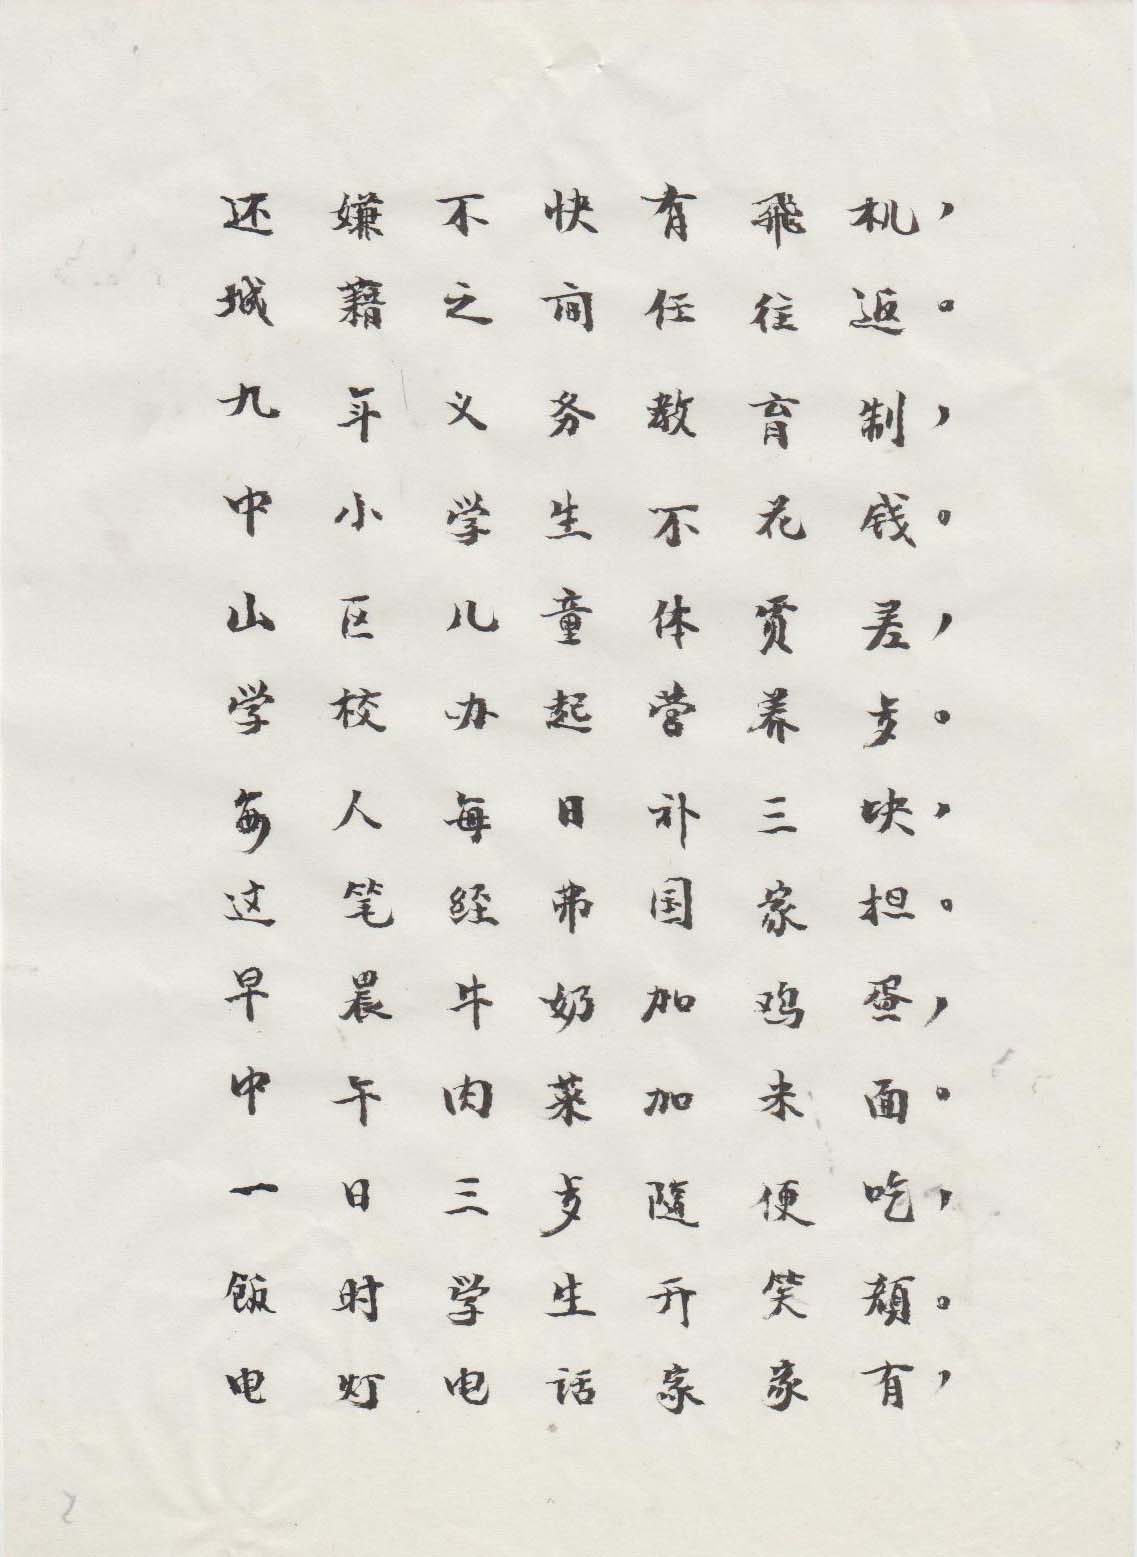 还嫌不快有飛机，
城藉之间任往返。
九年义务教育制，
中小学生不花钱。
山区儿童体质差，
学校办起营养歺。
每人每日补三块，
这笔经弗国家担。
早晨牛奶加鸡蛋，
中午肉菜加米面。
一日三歺隨便吃，
饭时学生开笑颜。
电灯电话家家有，
2